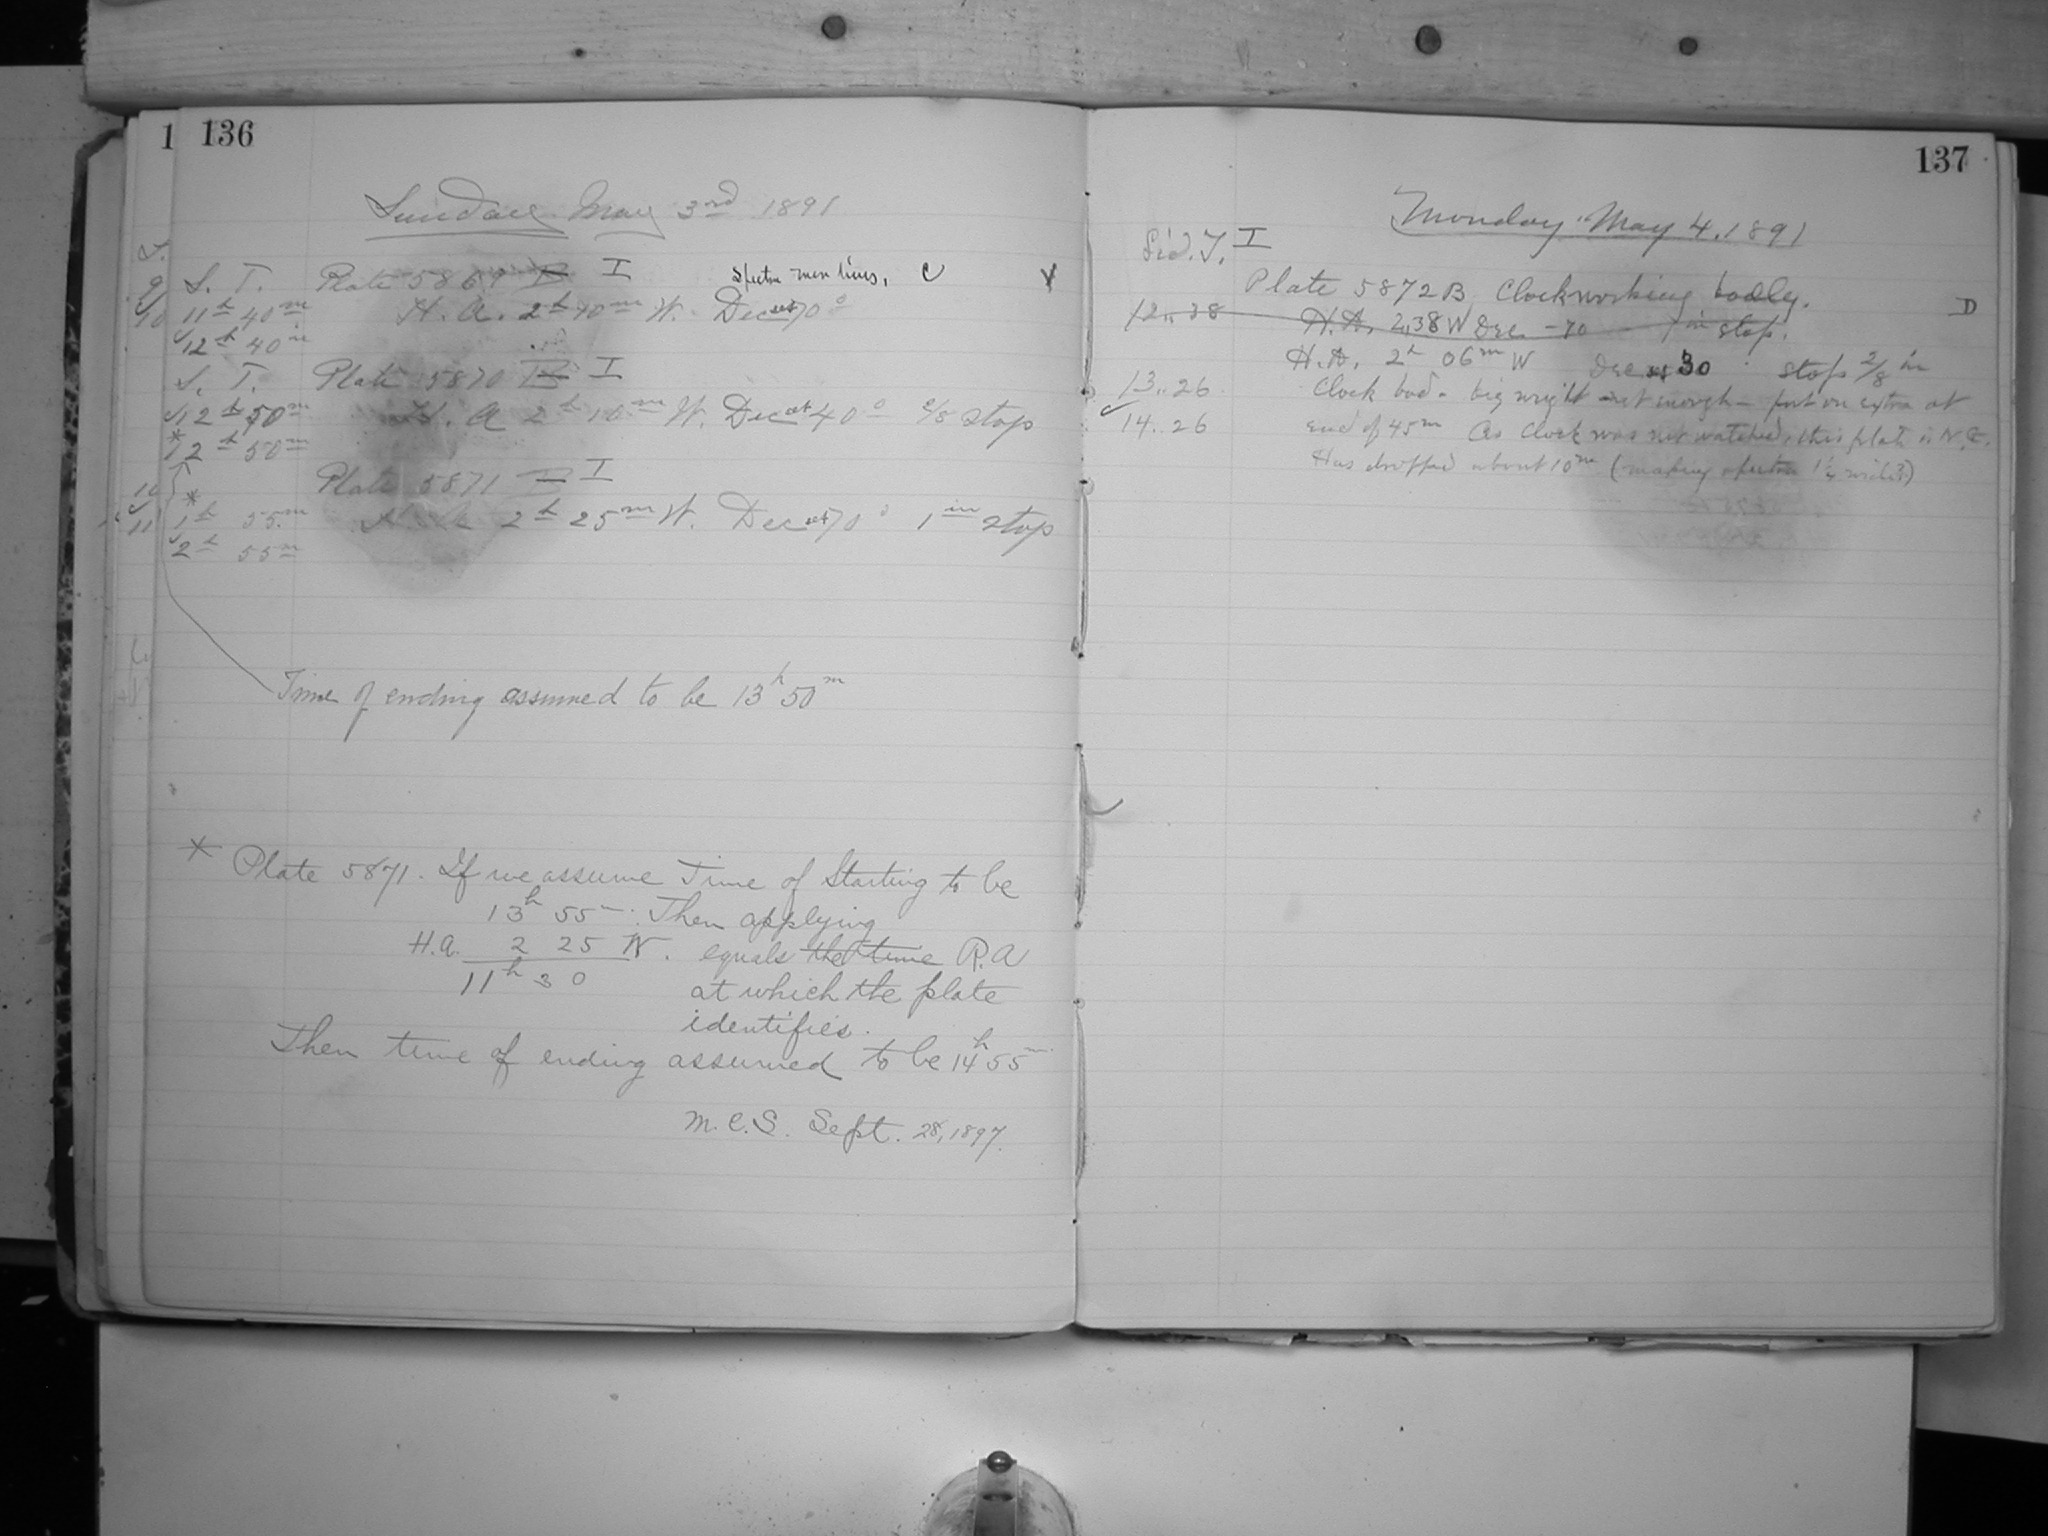 1 136
Sunday May 3rd 1891
S. T. Plate 5869 B I Spectra mere lines, C Y
11h 40m H. A. 2h 40m W. Dec 70°
12h 40m
S. T. Plate 5870 B I
12h 50m H. A 2h 10m W. Dec 40° 2/8 stop
*2h 50m
Plate 5871 B I
*1h 55m H. A 2h 25m W. Dec 70° 1in stop
2h 55m
Time of ending assumed to be 13h 50m
* Plate 5871. If we assume Time of Starting to be
13h 55m. Then applying
H.A. 2 25 W. equals the time R.A
11h 30 at which the plate
identifies.
Then time of ending assumed to be 14h 55m
M.C.S. Sept. 28, 1897.
137
Monday May 4, 1891
Sid. T. I
Plate 5872B Clock working badly. D
12.. 38 H.A, 2..38 W Dec -70 1 in stop.
H.A, 2h 06m W Dec 30 stop 2/8 in
13.. 26 Clock bad - big weight not enough - put on extra at
14.. 26 end of 45m As clock was not watched, this plate is N.G.
Has dropped about 10m (making spectra 1/4 wide?)